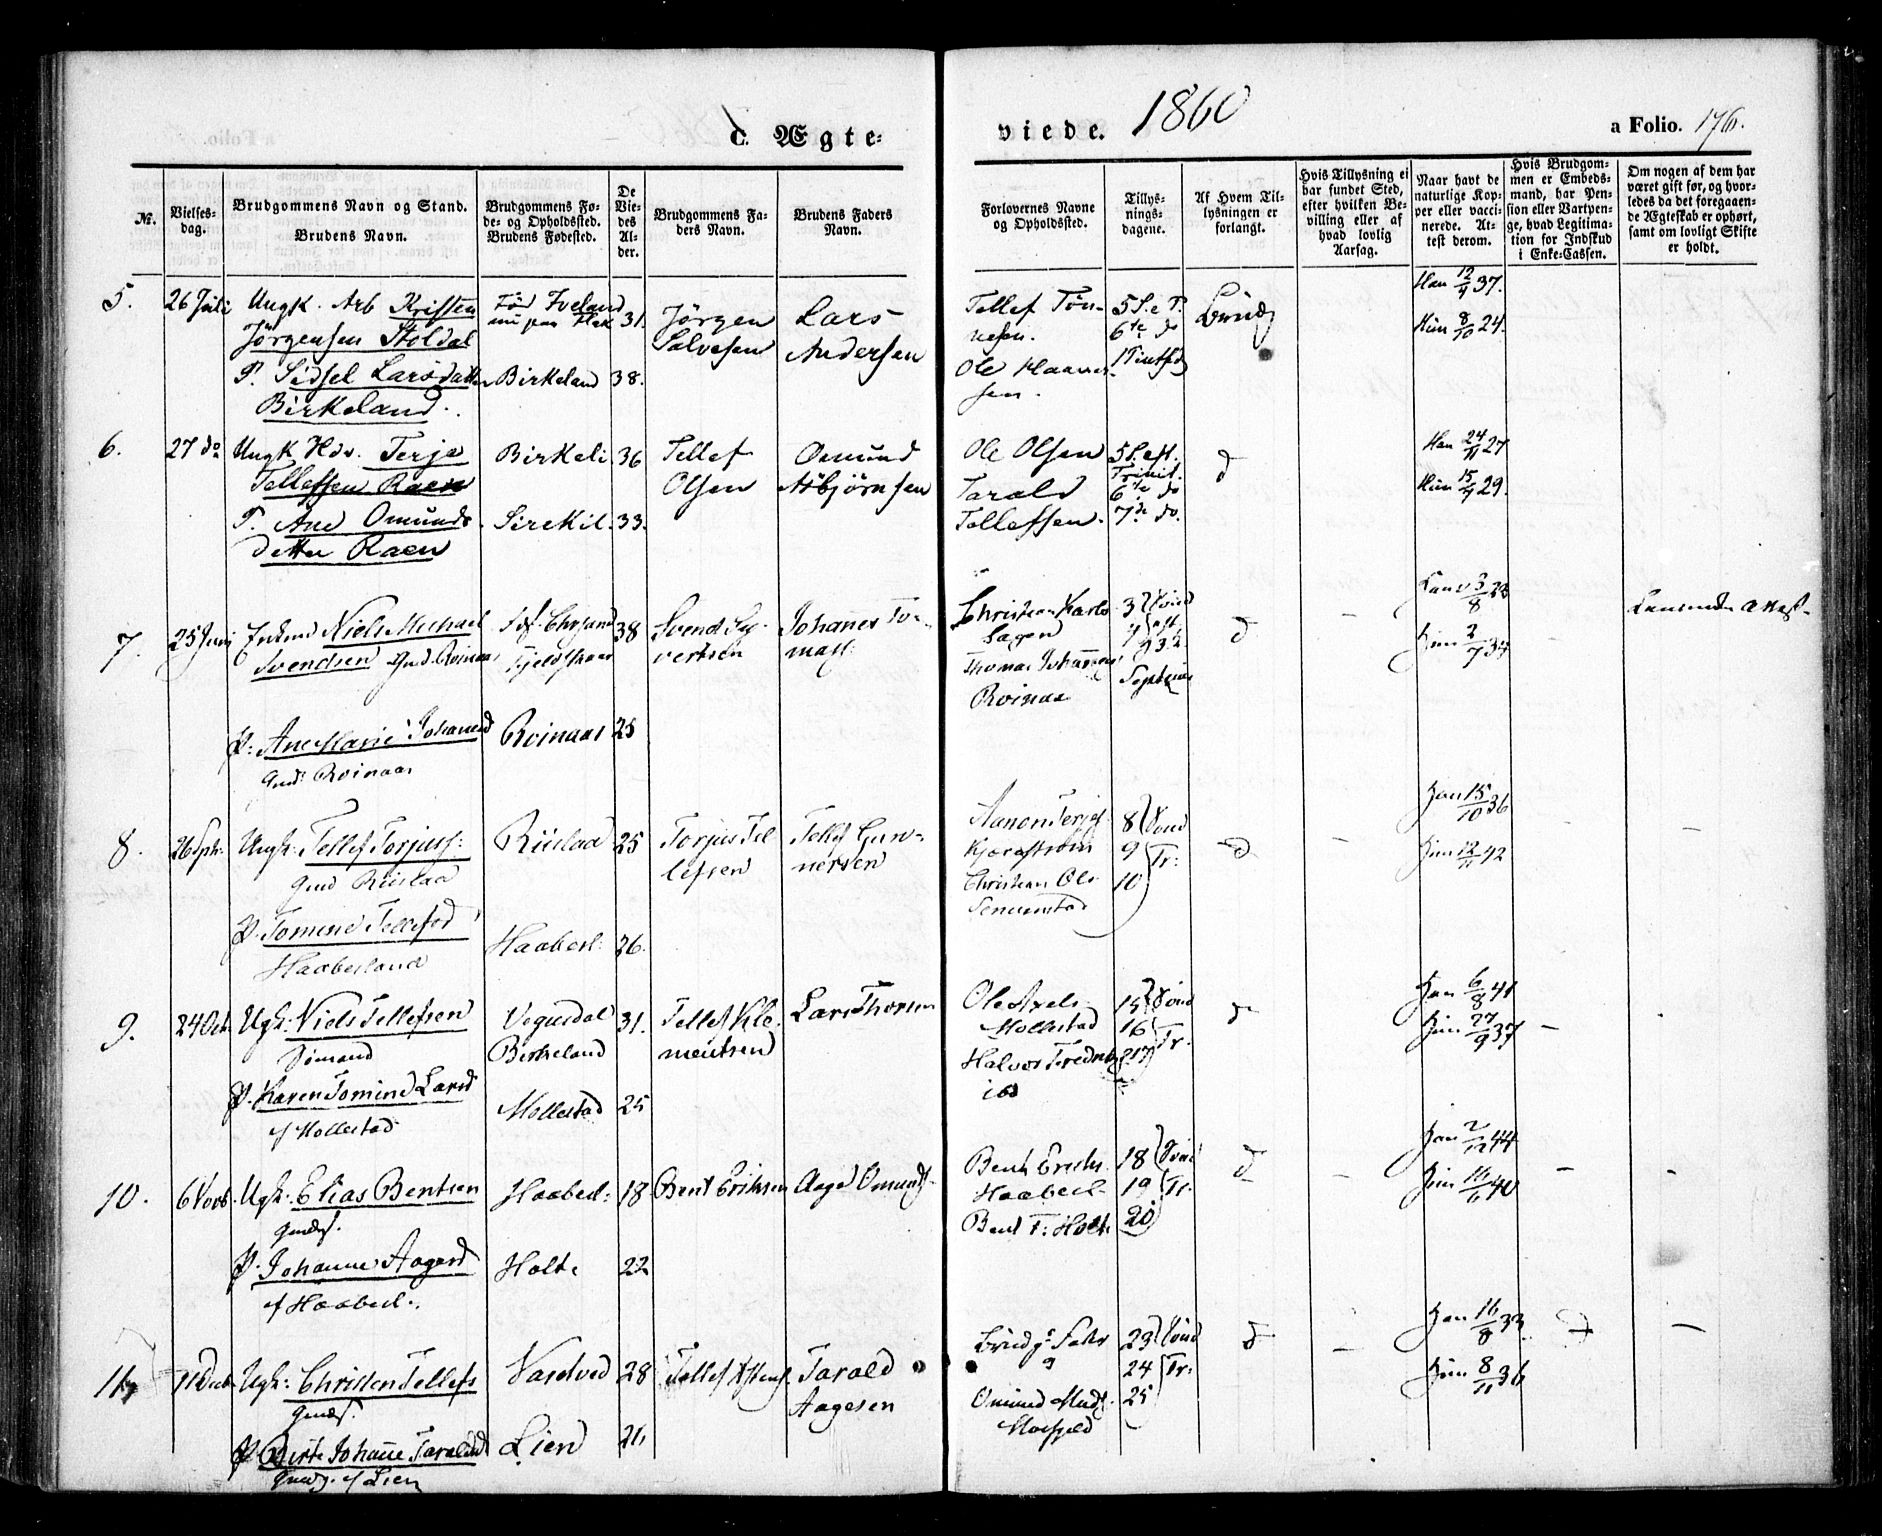 c. Ægte-
viede. 1860
a Folio. 176.
№.
Vielses-
dag.
Brudgommens Navn og Stand.
Brudens Navn.
Brudgommens Fø-
de- og Opholdssted.
Brudens Fødested.
De
Vie-
des
Al-
der.
Brudgommens Fa-
ders Navn.
Brudens Faders
Navn.
Forlovernes Navne
og Opholdssted.
Tillys-
nings-
dagene.
Af Hvem Til-
lysningen er
forlangt.
Hvis Tillysning ei
har fundet Sted,
efter hvilken Be-
villing eller af
hvad lovlig
Aarsag.
Naar havt de
naturlige Kop-
per eller vacci-
nerede. At-
test derom.
Hvis Brudgom-
men er Embeds-
mand, har Pen-
sion eller Vartpen-
ge, hvad Legitima-
tion for Indskud
i Enke-Cassen.
Om nogen af dem har
været gift før, og hvor-
ledes da det foregaaen-
de Ægteskab er ophørt,
samt om lovligt Skifte
er holdt.
5. 26 Juli Ungk. Arb Kristen
Jørgensen Stoldal
P. Sidsel Larsdatter
Birkeland.
Fød Iveland
31.
Birkeland 38.
Jørgen
Salvesen
Lars
Andersen
Tellef Tøn-
nesen.
Ole
sen.
5 S. e T.
6te do
Brudg
Han 12/4 37.
Hun 8/10 24.
6. 27 do Ungk Hdv. Terje
Tellefsen Raen
P. Ane Omunds-
detter Raen
Birkeli 36
Sirekil. 33.
Tellef
Olsen
Omund
Asbjørnsen
Ole Olsen
Tarald
Tellefsen.
5 S. eft.
Trinit.
6te do
7de do.
d
Han 24/11 27
Hun 15/9 29.
7. 25 Juni Enkem Niels Michael
Svendsen Gmd. Roinaas
P: Ane Marie Johannesd
Gmd: Roinaas
38
Roinaas 25
Svend Sig-
vertsen
Johannes To-
mass:
Christian Karls
Thomas Johannes
Roinaas
d
Han 3/8
Hun 2/7
8. 26 Septr. Ungk: Tellef Torjuss:
Gmd Riislaa
P. Tomine Tellefsd
Haabesland
Riislaa 25
Haabesl: 26.
Torjus Tel
lefsen
Tellef Gun-
nersen
Aanon Terjes
Kjærestrøm
Christian Ols
Senumstad
8 Sønd
9 Tr:
10
d
Han 15/10 36
Hun 12/11 42
9. 24 Octr. Ugk: Niels Tellefsen
Sømand
P. Karen Tomine Larsd
af Mollestad
Vegusdal
Birkeland
31.
Mollestad 25
Tellef Kle-
mentsen
Lars Thorsen
Ole Axels
Mollestad
Halvor Fredrik
15 Sønd
16 Tr.
17
d
Han 6/8 41
Hun 27/9 37
10. 6 Novb. Ugk: Elias Bentsen
Gmdsf.
P. Johanne Aagesd
af Haabesl.
Haabesl: 18
Holte 22
Bent Eriksen
Aage Omunds
Bent Ericks
Haabesl
Bent T: Holte
18 Sønd
19 Tr.
20
d
Han 2/12 44
Hun 16/11 40
11 11 Decb. Ugk: Christen Tellefs
Gmdsf.
P. Birte Johanne Taraldsd
Gmdsf. af Lien
Vastved 28
Lien 26
Tellef
Tarald
Aagesen
Brudgs Fader
Omund
23 Sønd
24 Tr:
25
d
Han 16/8 33
Hun 8/11 36